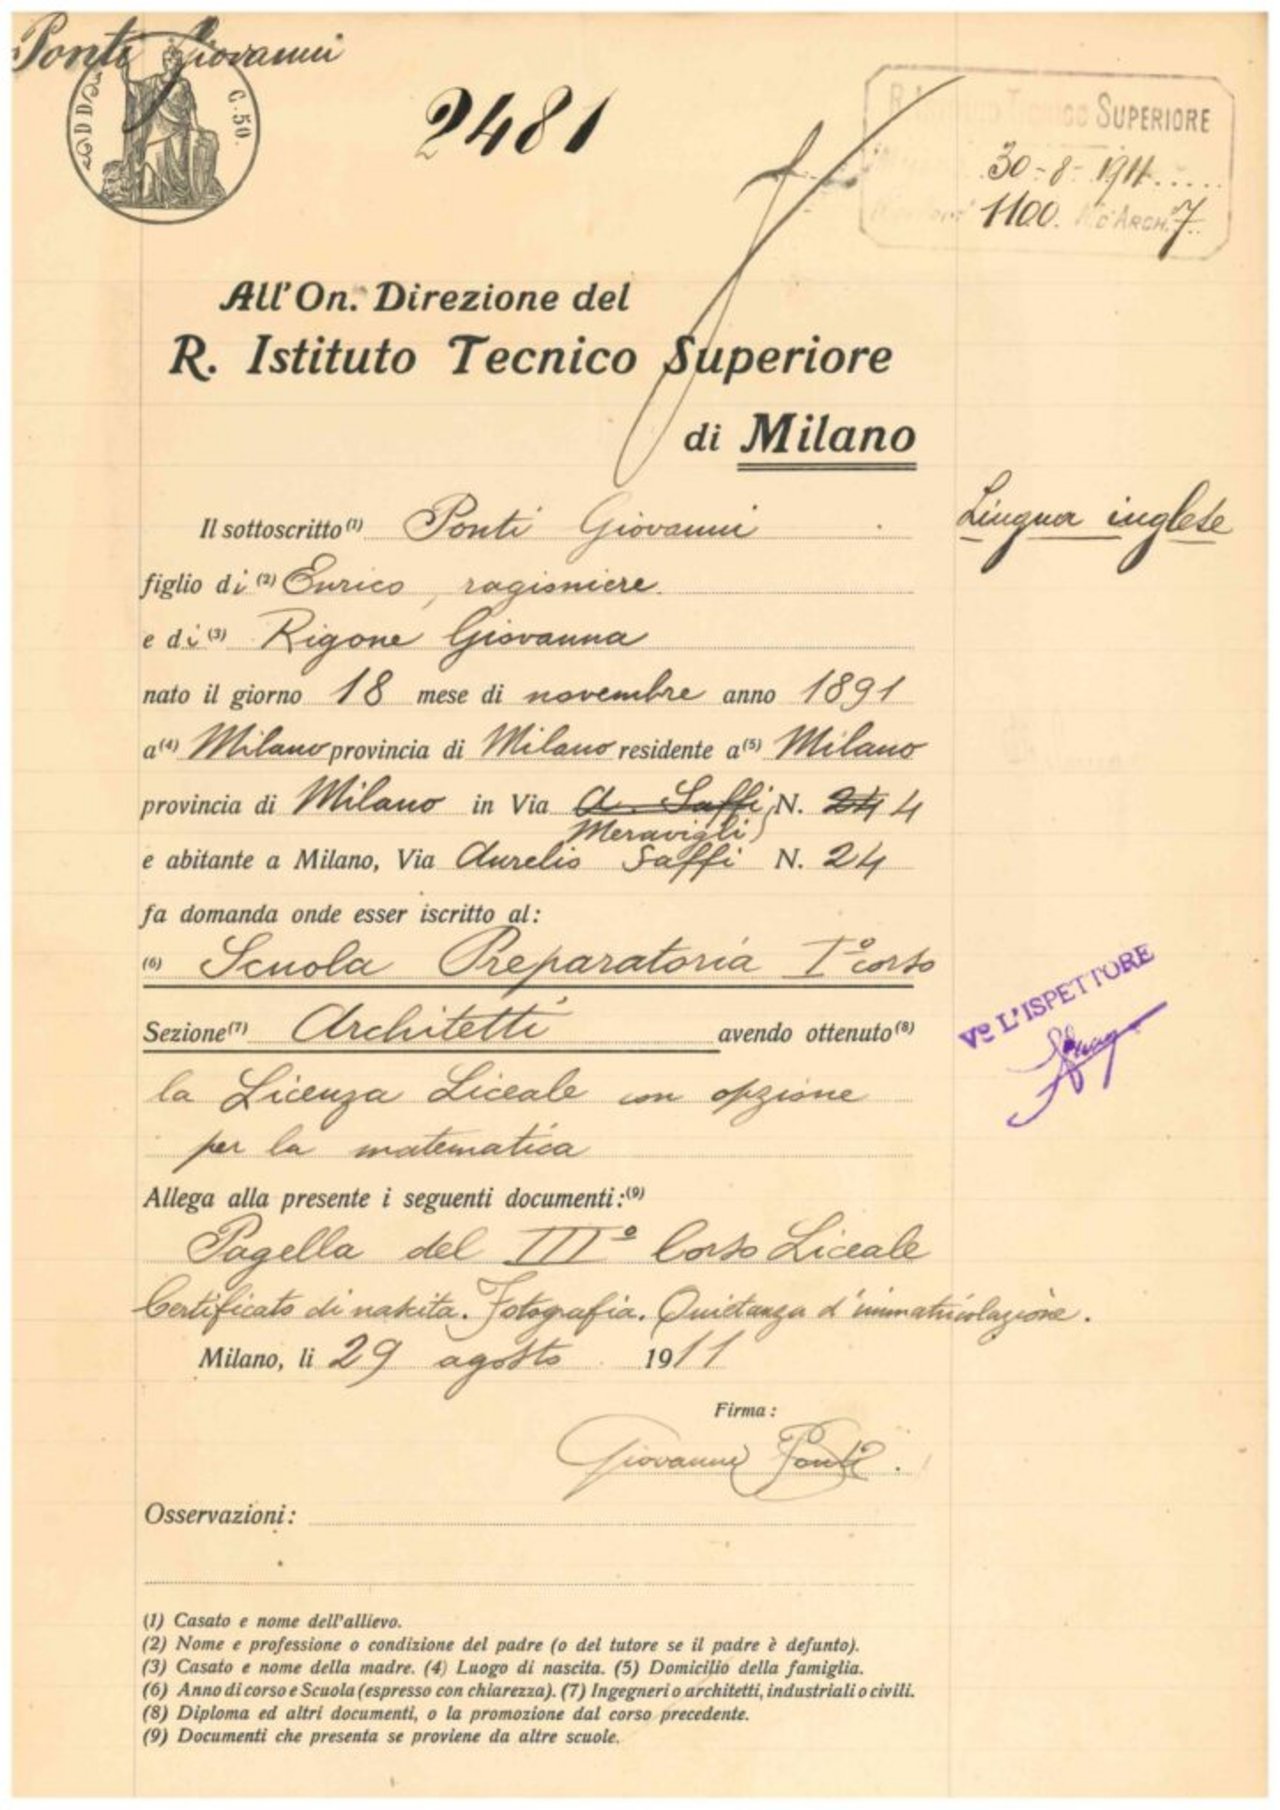 Ponti Giovanni
C. 50.
2481
R. Istituto Tecnico SUPERIORE
30-8-1911.....
1100. N. d'ARCH. 7.
All'On. Direzione del
R. Istituto Tecnico Superiore
di Milano
Lingua inglese
Il sottoscritto (1) Ponti Giovanni
figlio di (2) Enrico, ragioniere.
e di (3) Rigone Giovanna
nato il giorno 18 mese di novembre anno 1891
a (4) Milano provincia di Milano residente a (5) Milano
provincia di Milano in Via A. Saffi, N. 24 4
Meravigli
e abitante a Milano, Via Aurelio Saffi N. 24
fa domanda onde esser iscritto al:
(6) Scuola Preparatoria I° corso
Sezione (7) Architetti avendo ottenuto (8)
Vº L'ISPETTORE
la Licenza Liceale con opzione
per la matematica
Allega alla presente i seguenti documenti: (9)
Pagella del III° Corso Liceale
Certificato di nascita. Fotografia. Quietanza d'immatricolazione.
Milano, li 29 agosto 1911
Firma:
Giovanni Ponti.
Osservazioni:
(1) Casato e nome dell'allievo.
(2) Nome e professione o condizione del padre (o del tutore se il padre è defunto).
(3) Casato e nome della madre. (4) Luogo di nascita. (5) Domicilio della famiglia.
(6) Anno di corso e Scuola (espresso con chiarezza). (7) Ingegneri o architetti, industriali o civili.
(8) Diploma ed altri documenti, o la promozione dal corso precedente.
(9) Documenti che presenta se proviene da altre scuole.